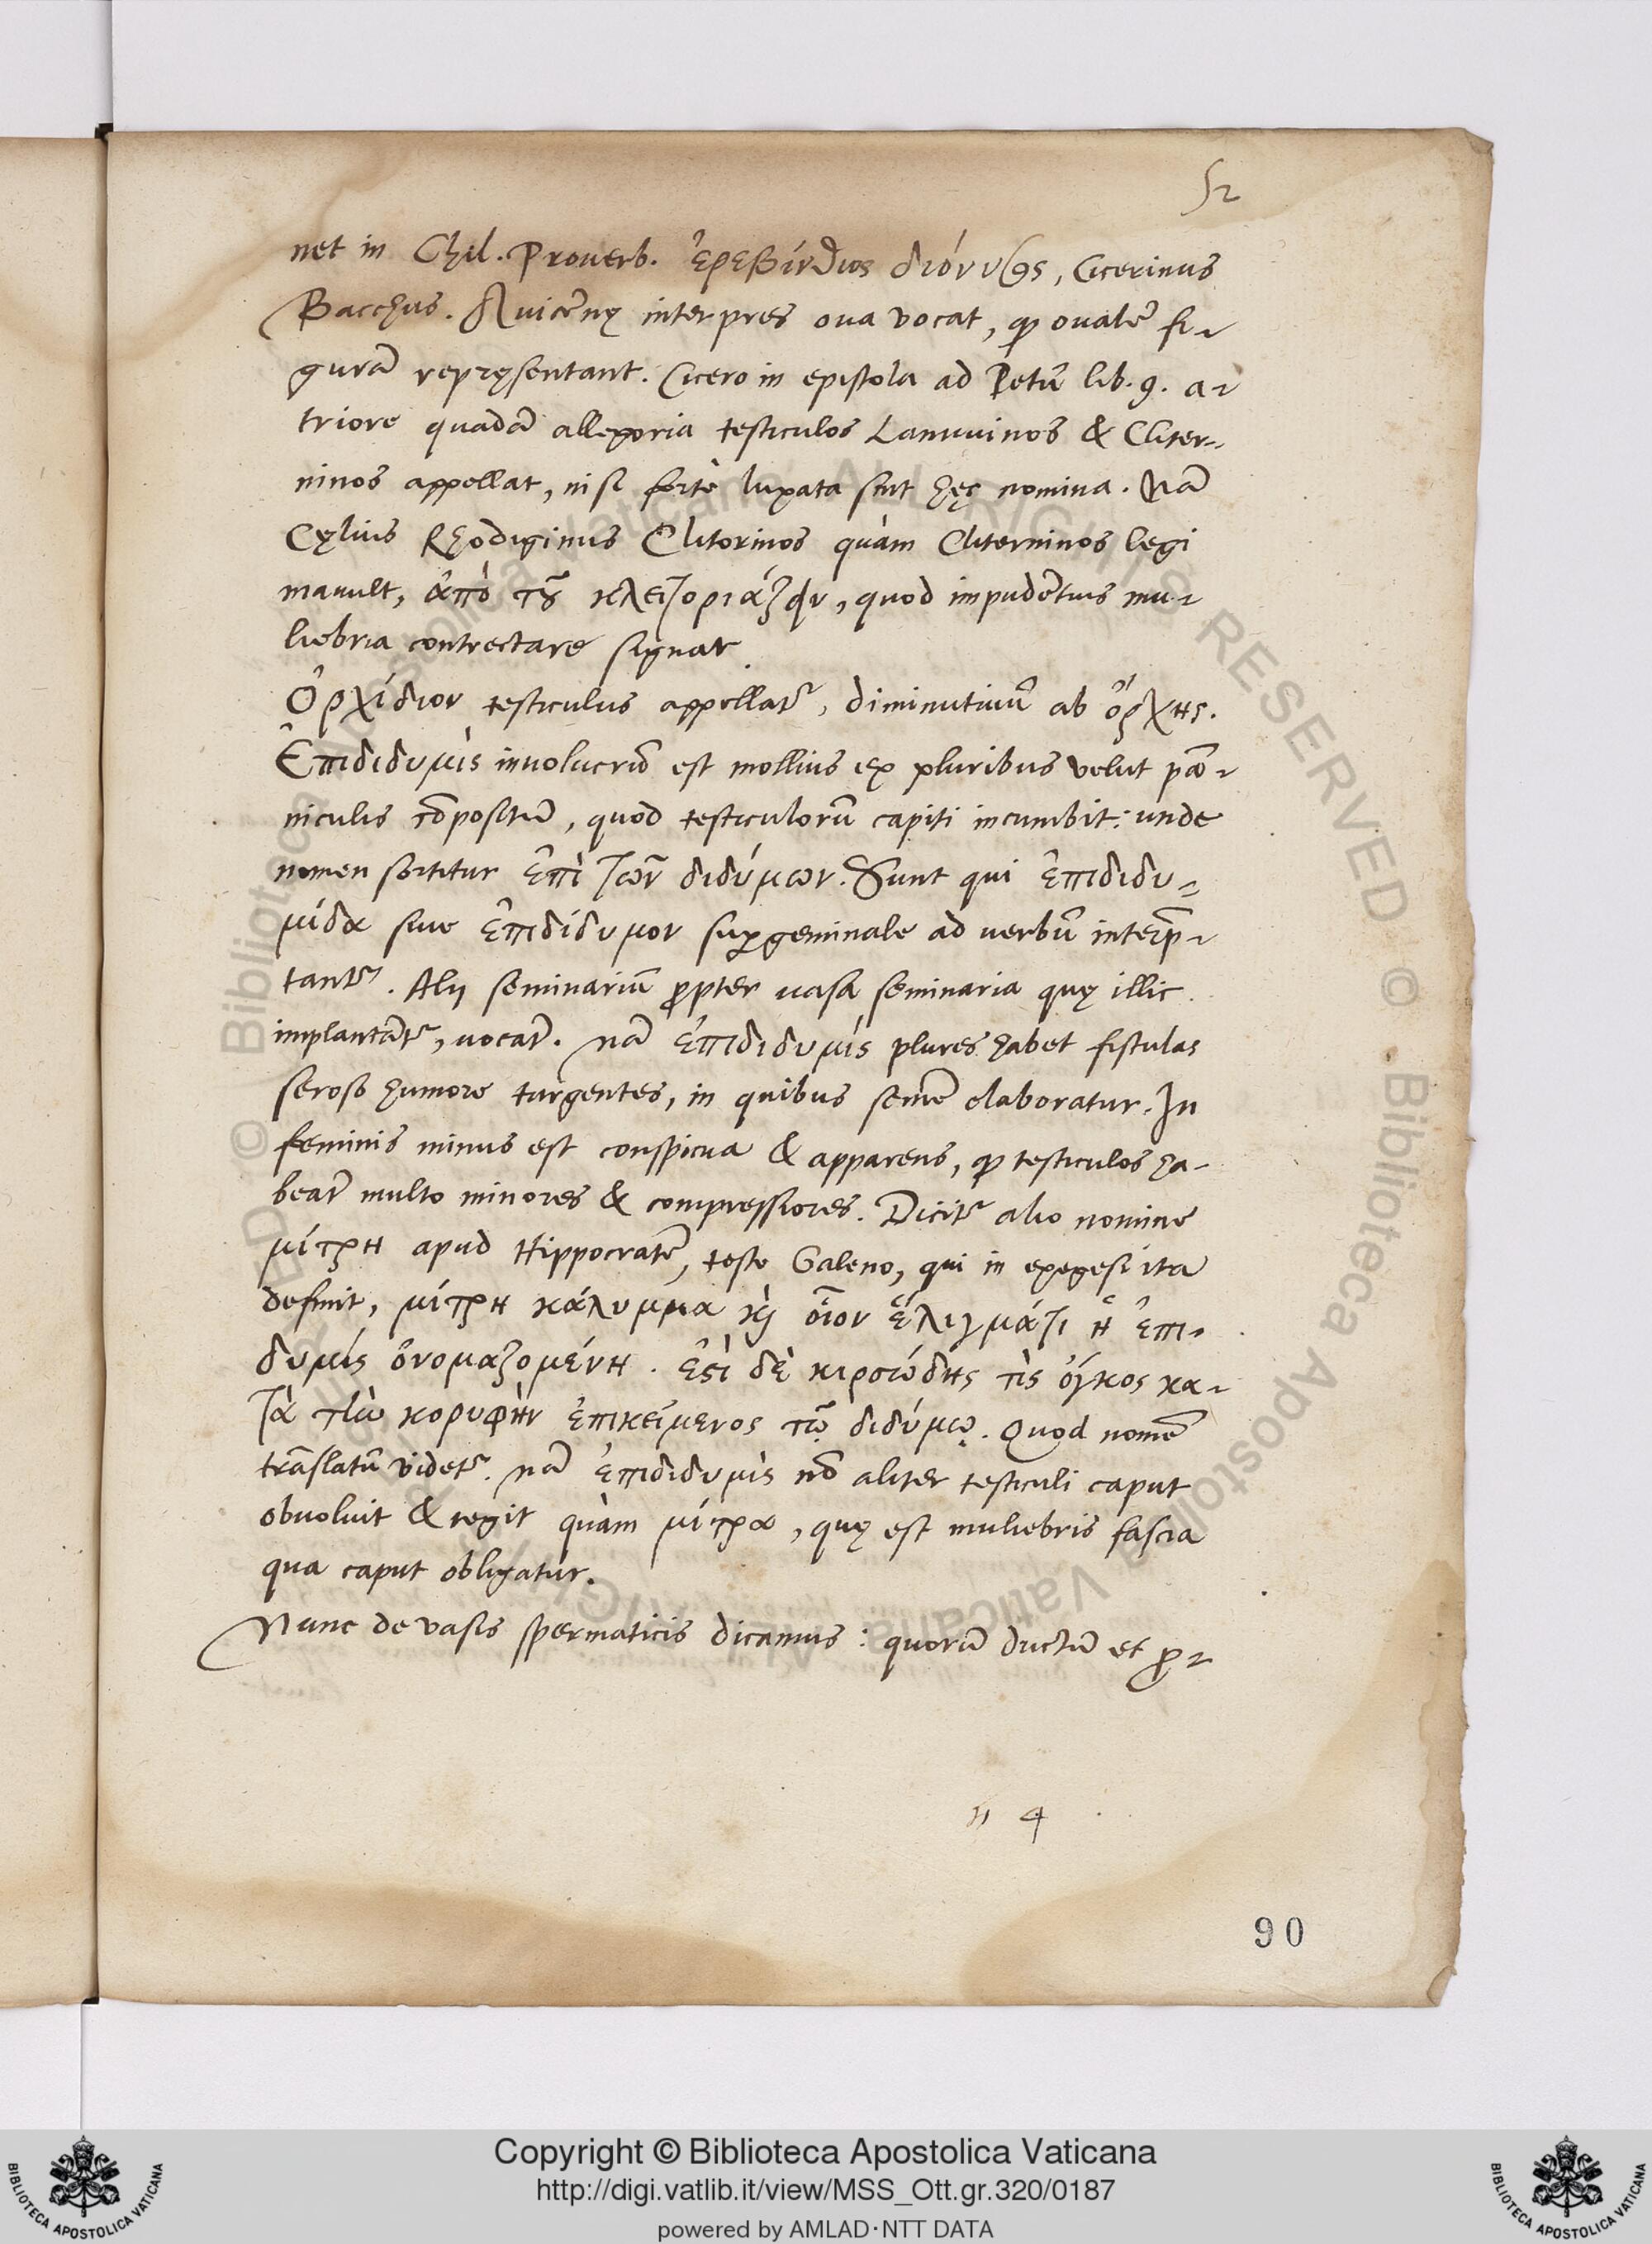 52
net in Chil. Prouerb. ἐρεβίνθιος διόνυσος, Cicerinus
Bacchus. Auicēnę interpres oua vocat, q̄ oualē fi-
gurā repręsentant. Cicero in epistola ad Petū lib. 9. a-
triore quadā allegoria testiculos Lanuuinos & Cliter-
ninos appellat, nisi fortè luxata sint hęc nomina. Nā
Cęlius Rhodiginus Clitorinos quàm Cliterninos legi
mauult, ἀπὸ τοῦ κλειτοριάζειν, quod impudētius mu-
liebria contrectare signat.
Ὀρχίδιον testiculus appellat᷑, diminutiuū ab ὄρχις.
Ἐπιδιδυμὶς inuolucrū est mollius ex pluribus velut pā-
niculis cōpositū, quod testiculorū capiti incumbit: unde
nomen sortitur ἐπὶ τῶν διδύμων. Sunt qui ἐπιδιδυ-
μίδα siue ἐπιδίδυμον suꝑgeminale ad uerbū interp̄-
tant᷑. Alij seminariū ꝓpter uasa seminaria quę illic
implantāt᷑, uocāt. nā ἐπιδιδυμίς plures habet fistulas
seroso humore turgentes, in quibus semē elaboratur. In
feminis minus est conspicua & apparens, q̄ testiculos ha-
beāt multo minores & compressiores. Dicit᷑ alio nomine
μίτρη apud Hippocratē, teste Galeno, qui in exegesi ita
definit, μίτρη κάλυμμα καὶ οἷον ἑλιγμάτι ἡ ἐπι-
δυμίς ὀνομαζομένη. ἐστὶ δὲ κιρσώδης τὶς ὄγκος κα-
τὰ τὴν κορυφὴν ἐπικείμενος τῷ διδύμῳ. Quod nomē
trāslatū videt᷑. nā ἐπιδιδυμὶς nō aliter testiculi caput
obuoluit & tegit quàm μίτρα, quę est muliebris fascia
qua caput obligatur.
Nunc de vasis spermaticis dicamus: quorū ductū et ꝓ-
n 4
90
Copyright © Biblioteca Apostolica Vaticana
http://digi.vatlib.it/view/MSS_Ott.gr.320/0187
powered by AMLAD·NTT DATA
BIBLIOTECA APOSTOLICA VATICANA
BIBLIOTECA APOSTOLICA VATICANA